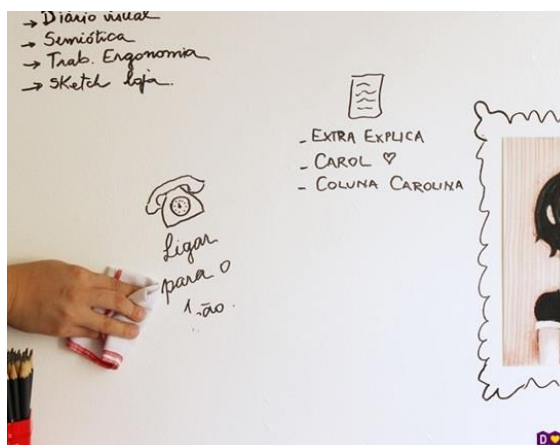 → Diário visual
→ Semiótica
→ Trab. Ergonomia
→ Sketch loja.
- EXTRA EXPLICA
- CAROL ♡
- COLUNA CAROLINA
Ligar
para o